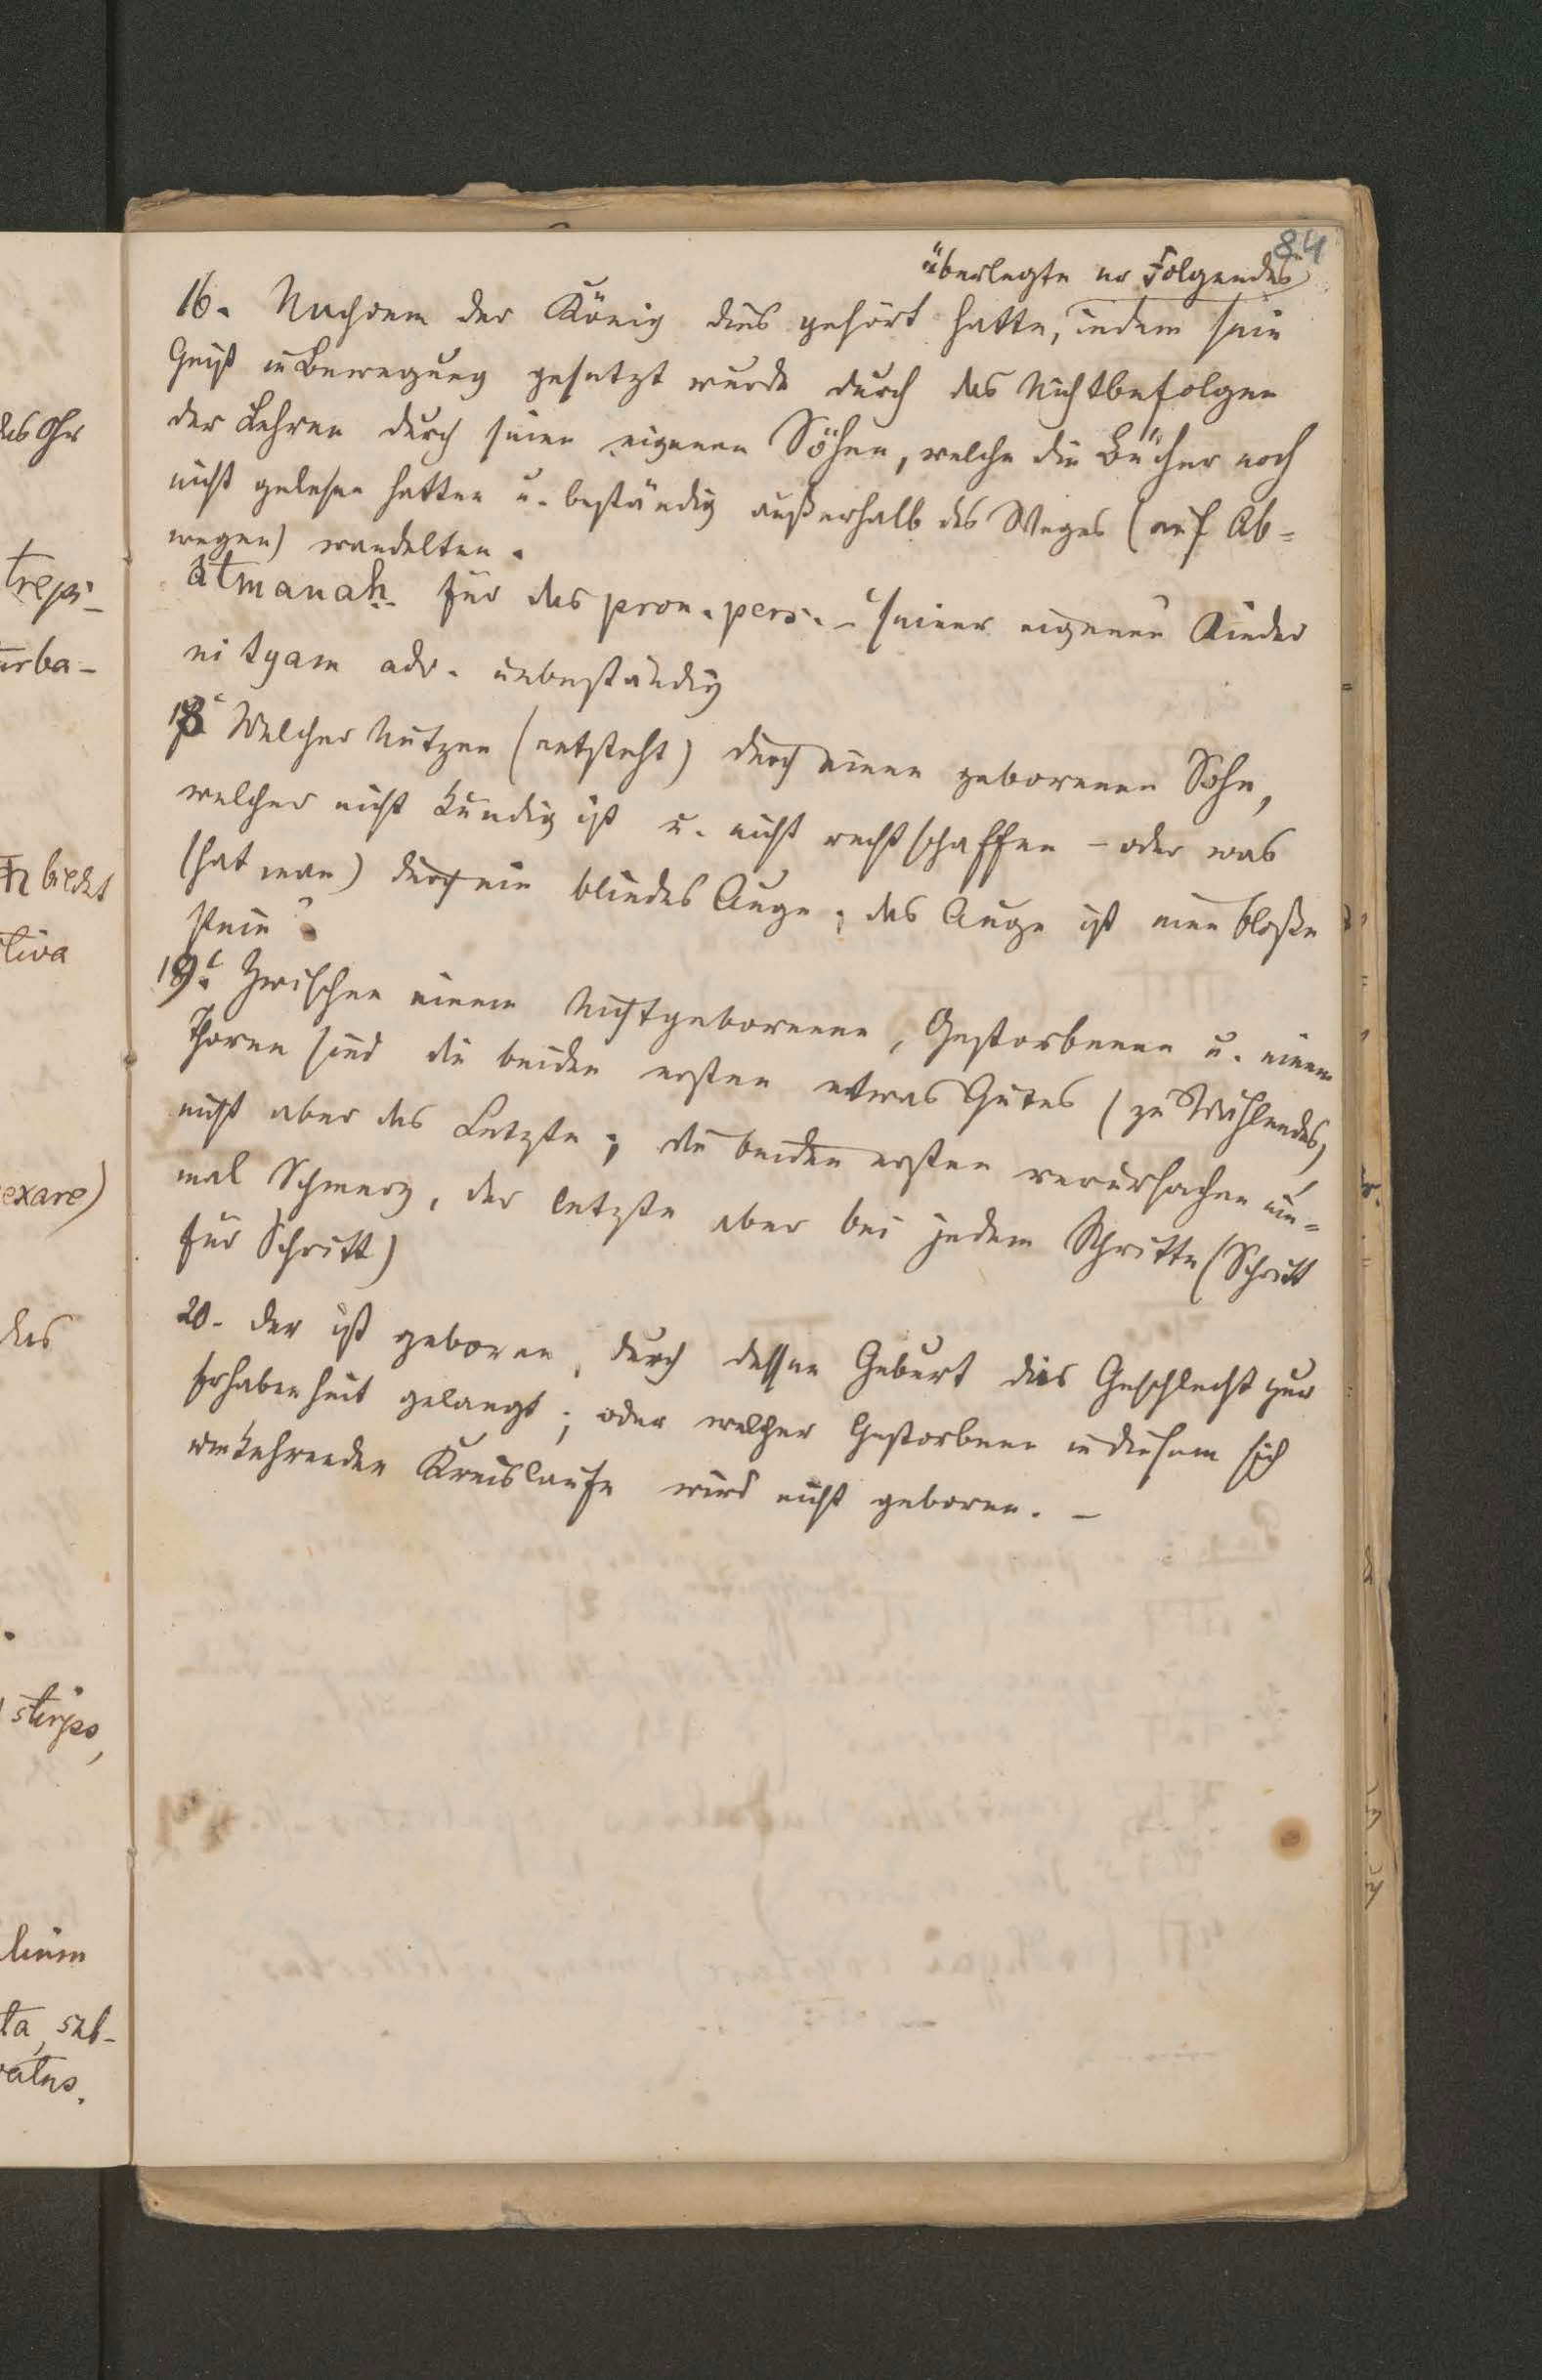 84
überlegte er Folgendes
16. Nachdem der König dies gehört hatte, indem sein
Geist in Bewegung gesetzt wurde durch das Nichtbefolgen
der Lehren durch seine eigenen Söhne, welche die Bücher noch
nicht gelesen hatten u. beständig außerhalb des Weges (auf Ab=
wegen) wandelten.
âtmanaḥ für das pron. pers. - "seiner eigenen" Kinder
nityam adv. unbeständig
18 Welcher Nutzen (entsteht) durch einen geborenen Sohn,
welcher nicht kundig ist u. nicht rechtschaffen - oder was
(hat man) durch ein blindes Auge; das Auge ist eine bloße
Pein?
19. Zwischen einem Nichtgeborenen, Gestorbenen u. einem
Thoren sind die beiden ersten etwas Gutes (zu Wählendes)
nicht aber das Letzte; die beiden ersten verursachen ein=
mal Schmerz, der letzte aber bei jedem Schritte (Schritt
für Schritt)
20. Der ist geboren, durch dessen Geburt dies Geschlecht zur
Erhabenheit gelangt; oder welcher Gestorbene in diesem sich
umkehrenden Kreislaufe wird nicht geboren. -
das Ohr
trepi-
urba-
bildet
tiva
exare)
das
stirps,
lium
ta, sub-
vatus.